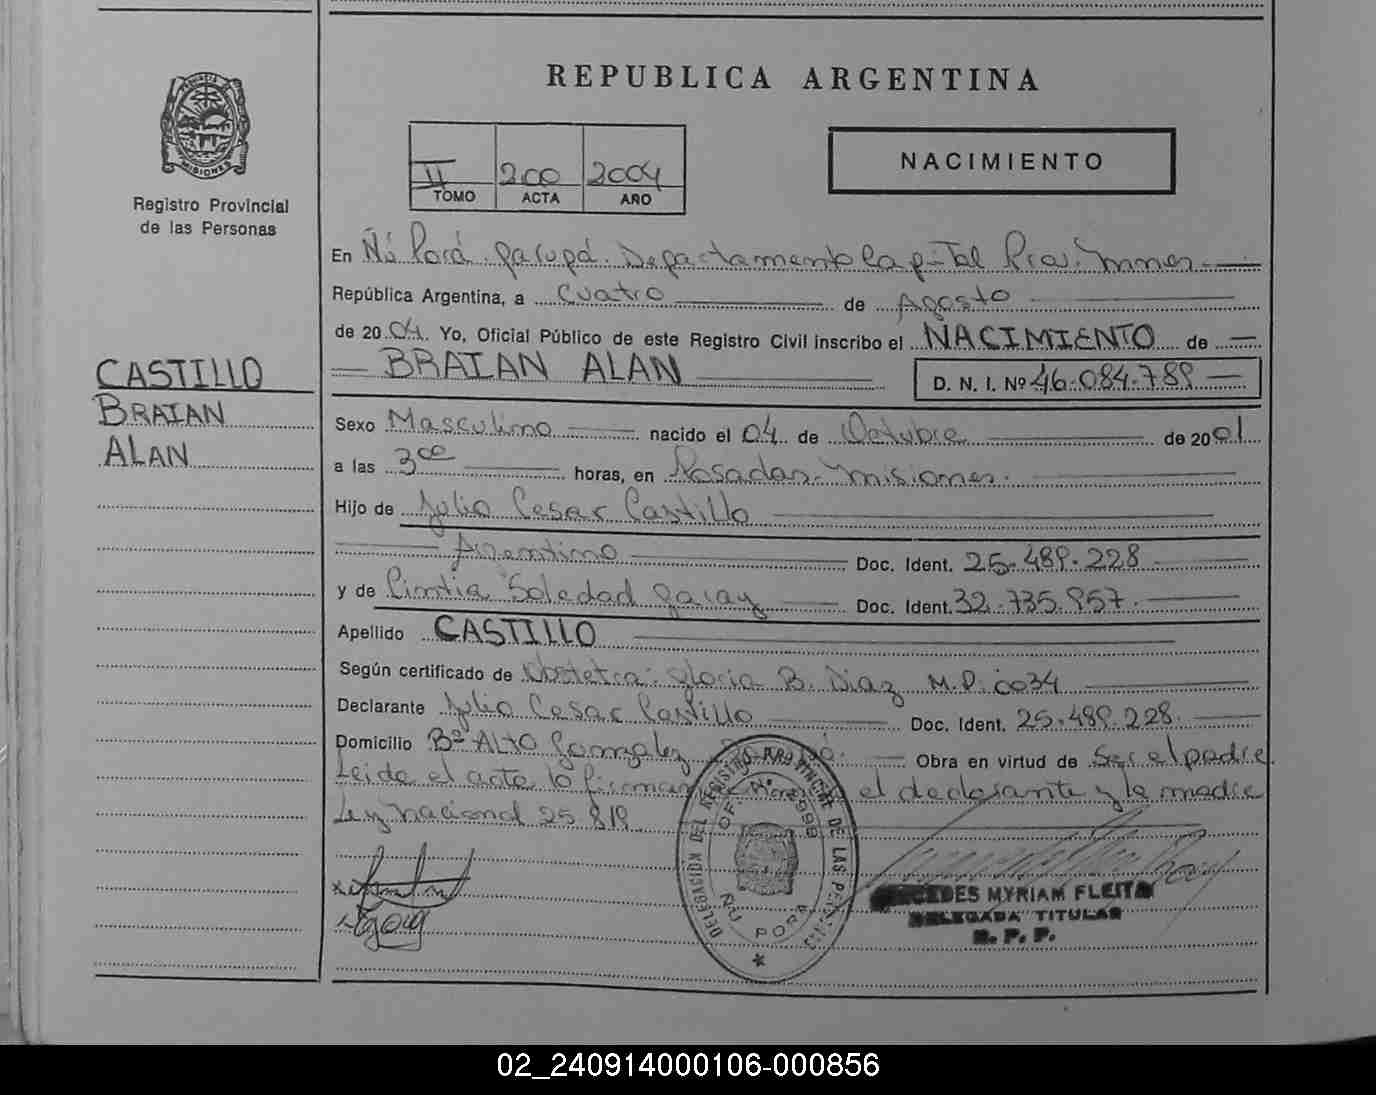 REPUBLICA ARGENTINA
PROVINCIA DE
MISIONES
Registro Provincial
de las Personas
II 200 2004
TOMO ACTA AÑO
NACIMIENTO
En Ñú Porá. Garupá. Departamento Capital Prov. Mnes.
República Argentina, a Cuatro de Agosto
de 2004. Yo, Oficial Público de este Registro Civil inscribo el NACIMIENTO de
BRAIAN ALAN D. N. I. Nº 46.084.789
CASTILLO
BRAIAN
ALAN
Sexo Masculino nacido el 04 de Octubre de 2001
a las 3 00 horas, en Posadas. Misiones.
Hijo de Julio Cesar Castillo
Argentino Doc. Ident. 25.489.228
y de Cintia Soledad Garay Doc. Ident. 32.735.957.
Apellido CASTILLO
Según certificado de Obstetra: Gloria B. Diaz M.P. 0034
Declarante Julio Cesar Castillo Doc. Ident. 25.489.228.
Domicilio Bº Alto Gonzalez Obra en virtud de Ser el padre.
Leida el acta lo firman el declarante y la madre
Ley nacional 25.819
DELEGACIÓN DEL REGISTRO PROVINCIAL DE LAS PERSONAS
ÑU PORA
MYRIAM FLEITA
DELEGADA TITULAR
R. P. P.
02_240914000106-000856